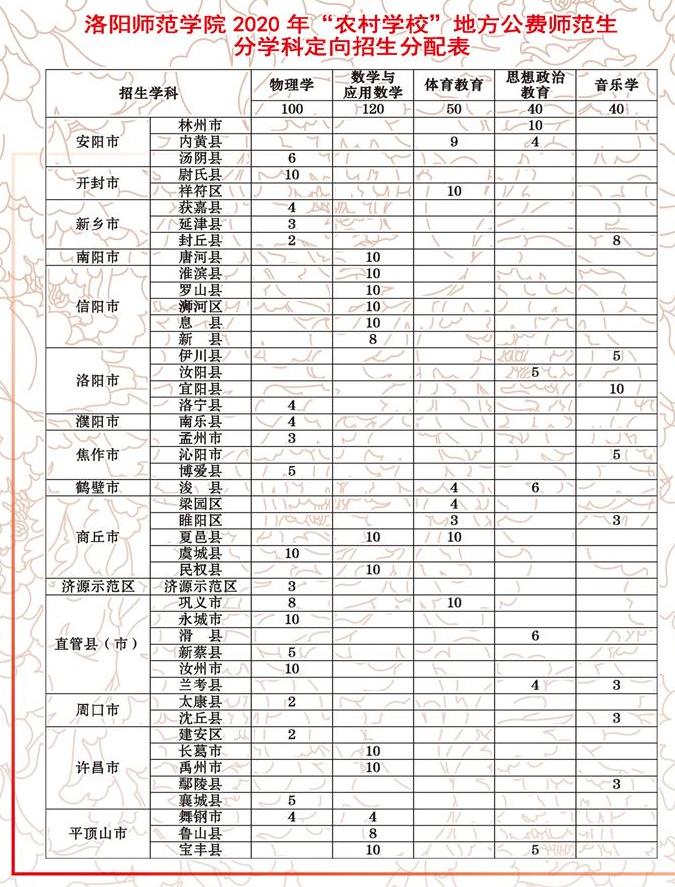 洛阳师范学院 2020 年“农村学校”地方公费师范生
分学科定向招生分配表
招生学科 物理学 数学与应用数学 体育教育 思想政治教育 音乐学
100 120 50 40 40
安阳市 林州市 10
内黄县 9 4
汤阴县 6
开封市 尉氏县 10
祥符区 10
新乡市 获嘉县 4
延津县 3
封丘县 2 8
南阳市 唐河县 10
信阳市 淮滨县 10
罗山县 10
浉河区 10
息 县 10
新 县 8
洛阳市 伊川县 5
汝阳县 5
宜阳县 10
洛宁县 4
濮阳市 南乐县 4
焦作市 孟州市 3
沁阳市 5
博爱县 5
鹤壁市 浚 县 4 6
商丘市 梁园区 4
睢阳区 3 3
夏邑县 10 10
虞城县 10
民权县 10
济源示范区 济源示范区 3
直管县（市） 巩义市 8 10
永城市 10
滑 县 6
新蔡县 5
汝州市 10
兰考县 4 3
周口市 太康县 2
沈丘县 3
许昌市 建安区 2
长葛市 10
禹州市 10
鄢陵县 3
襄城县 5
平顶山市 舞钢市 4 4
鲁山县 8
宝丰县 10 5